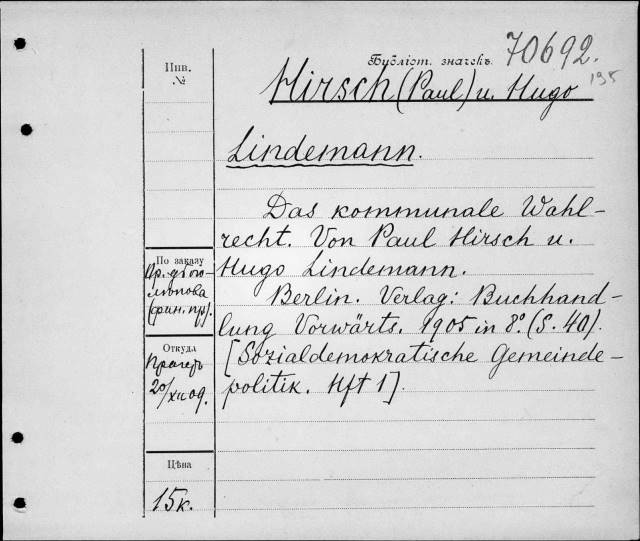 Библіот. значекъ 70692.
195
Hirsch (Paul) u. Hugo
Lindemann.
Das kommunale Wahl-
recht. Von Paul Hirsch u.
Hugo Lindemann.
Berlin. Verlag: Buchhand-
lung Vorwärts. 1905 in 8º. (S. 40).
[Sozialdemokratische Gemeinde-
politik. Hft 1].
Инв.
№
По заказу
(фин. пр).
Откуда
Прагеръ
20/XII 09.
Цѣна
15к.